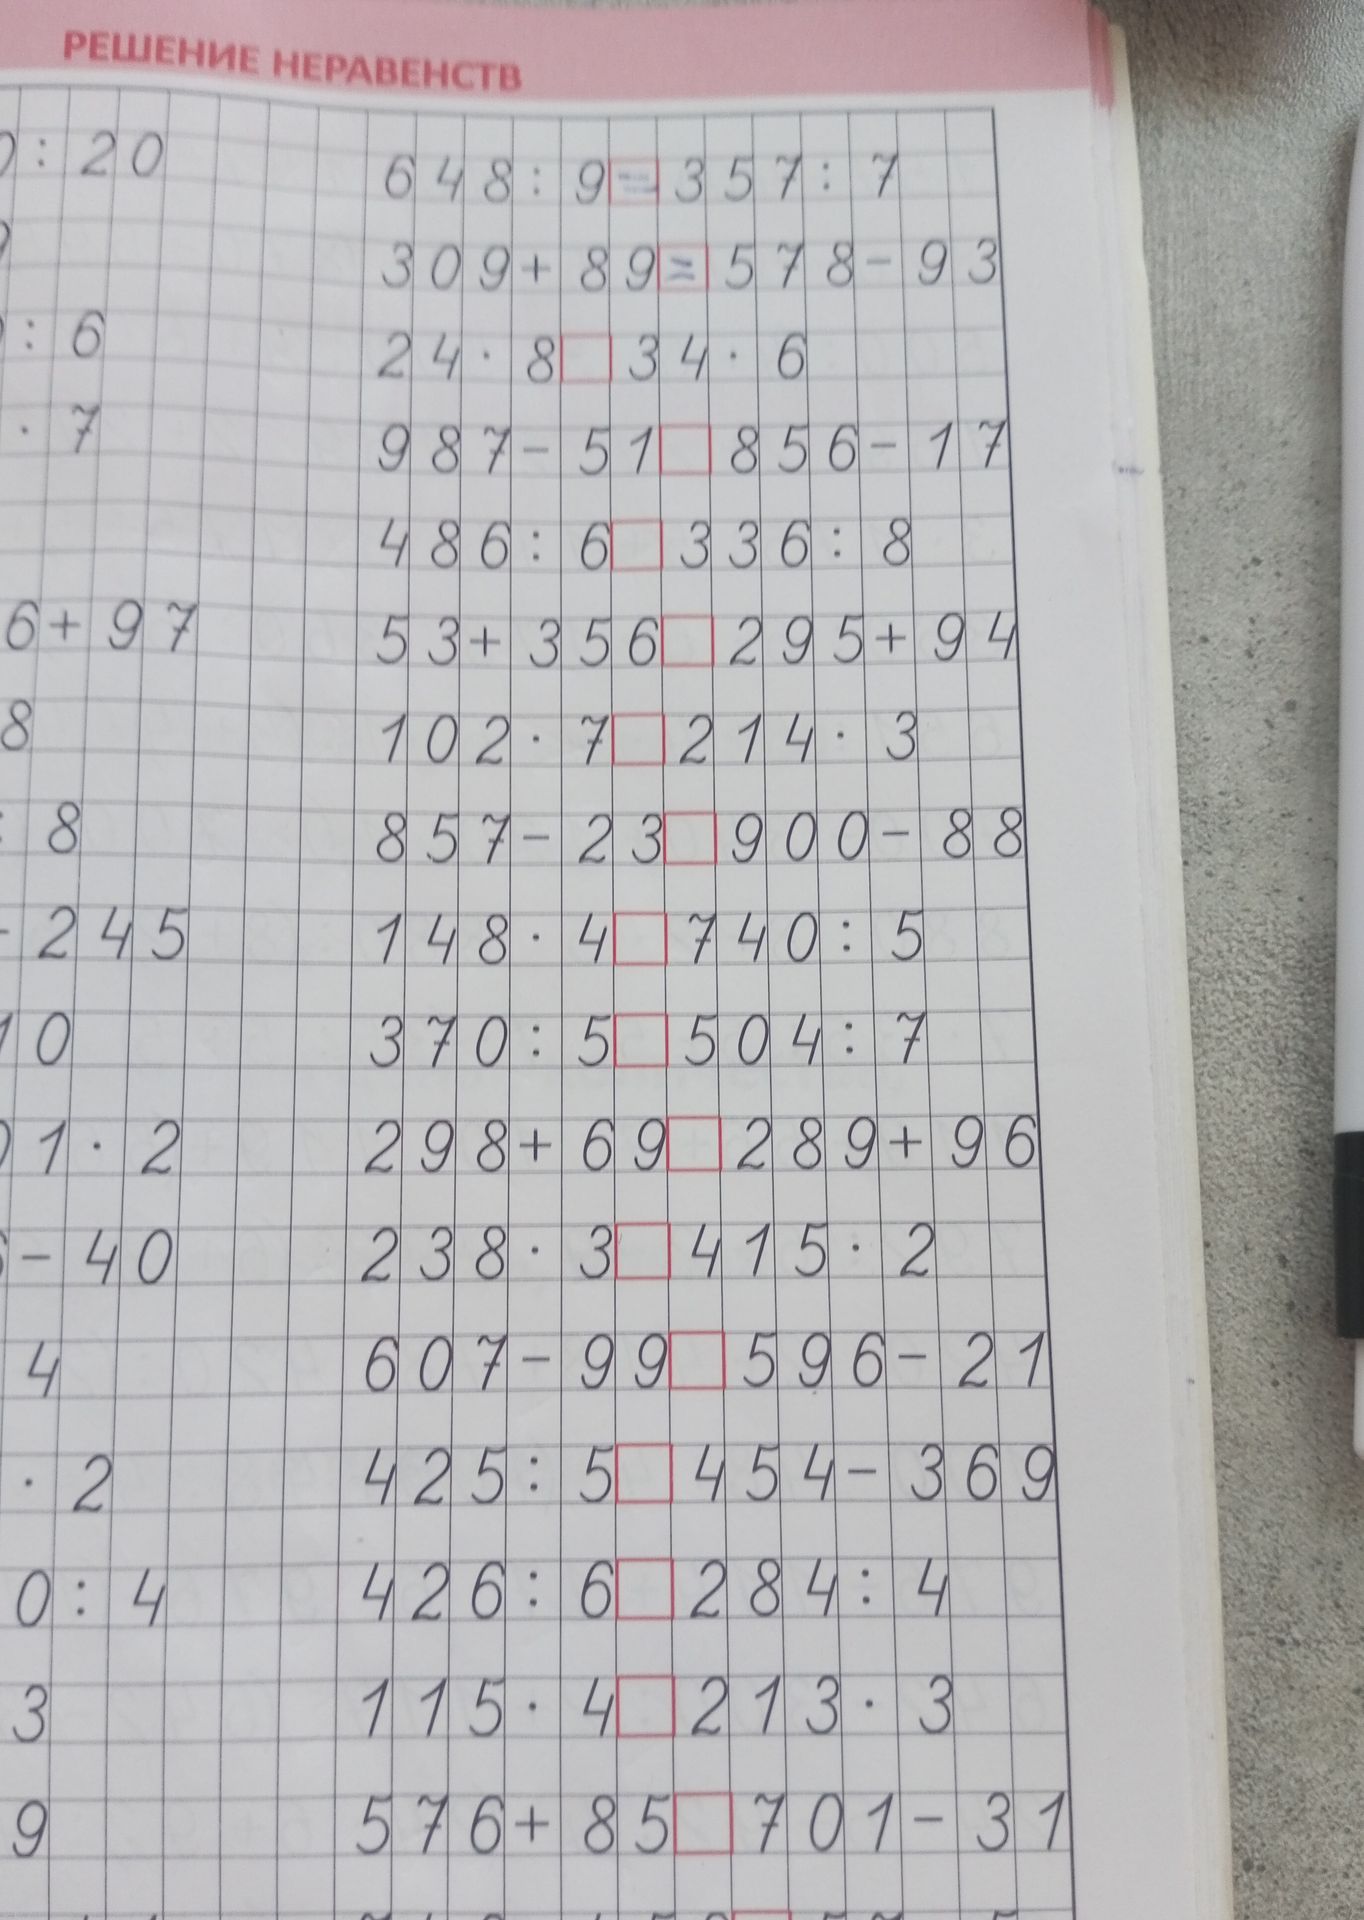 РЕШЕНИЕ НЕРАВЕНСТВ
: 20
648 : 9 = 357 : 7
309 + 89 = 578 - 93
: 6
24 · 8 □ 34 · 6
· 7
987 - 51 □ 856 - 17
486 : 6 □ 336 : 8
6 + 97
53 + 356 □ 295 + 94
8
102 · 7 □ 214 · 3
: 8
857 - 23 □ 900 - 88
- 245
148 · 4 □ 740 : 5
10
370 : 5 □ 504 : 7
1 · 2
298 + 69 □ 289 + 96
- 40
238 · 3 □ 415 · 2
4
607 - 99 □ 596 - 21
· 2
425 : 5 □ 454 - 369
0 : 4
426 : 6 □ 284 : 4
3
115 · 4 □ 213 · 3
9
576 + 85 □ 701 - 31